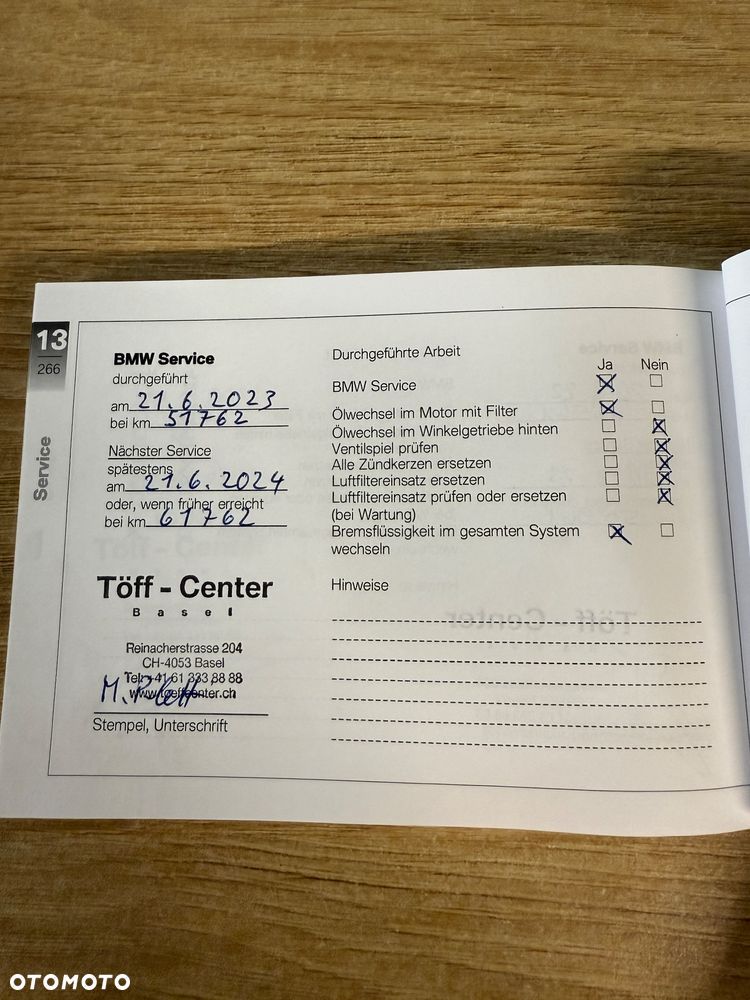 13
266
Service
BMW Service
durchgeführt
am 21.6.2023
bei km 51762
Nächster Service
spätestens
am 21.6.2024
oder, wenn früher erreicht
bei km 61762
Töff - Center
Basel
Reinacherstrasse 204
CH-4053 Basel
Tel: +41 61 333 88 88
www.toeffcenter.ch
Stempel, Unterschrift
Durchgeführte Arbeit
Ja Nein
BMW Service
Ölwechsel im Motor mit Filter
Ölwechsel im Winkelgetriebe hinten
Ventilspiel prüfen
Alle Zündkerzen ersetzen
Luftfiltereinsatz ersetzen
Luftfiltereinsatz prüfen oder ersetzen
(bei Wartung)
Bremsflüssigkeit im gesamten System
wechseln
Hinweise
OTOMOTO